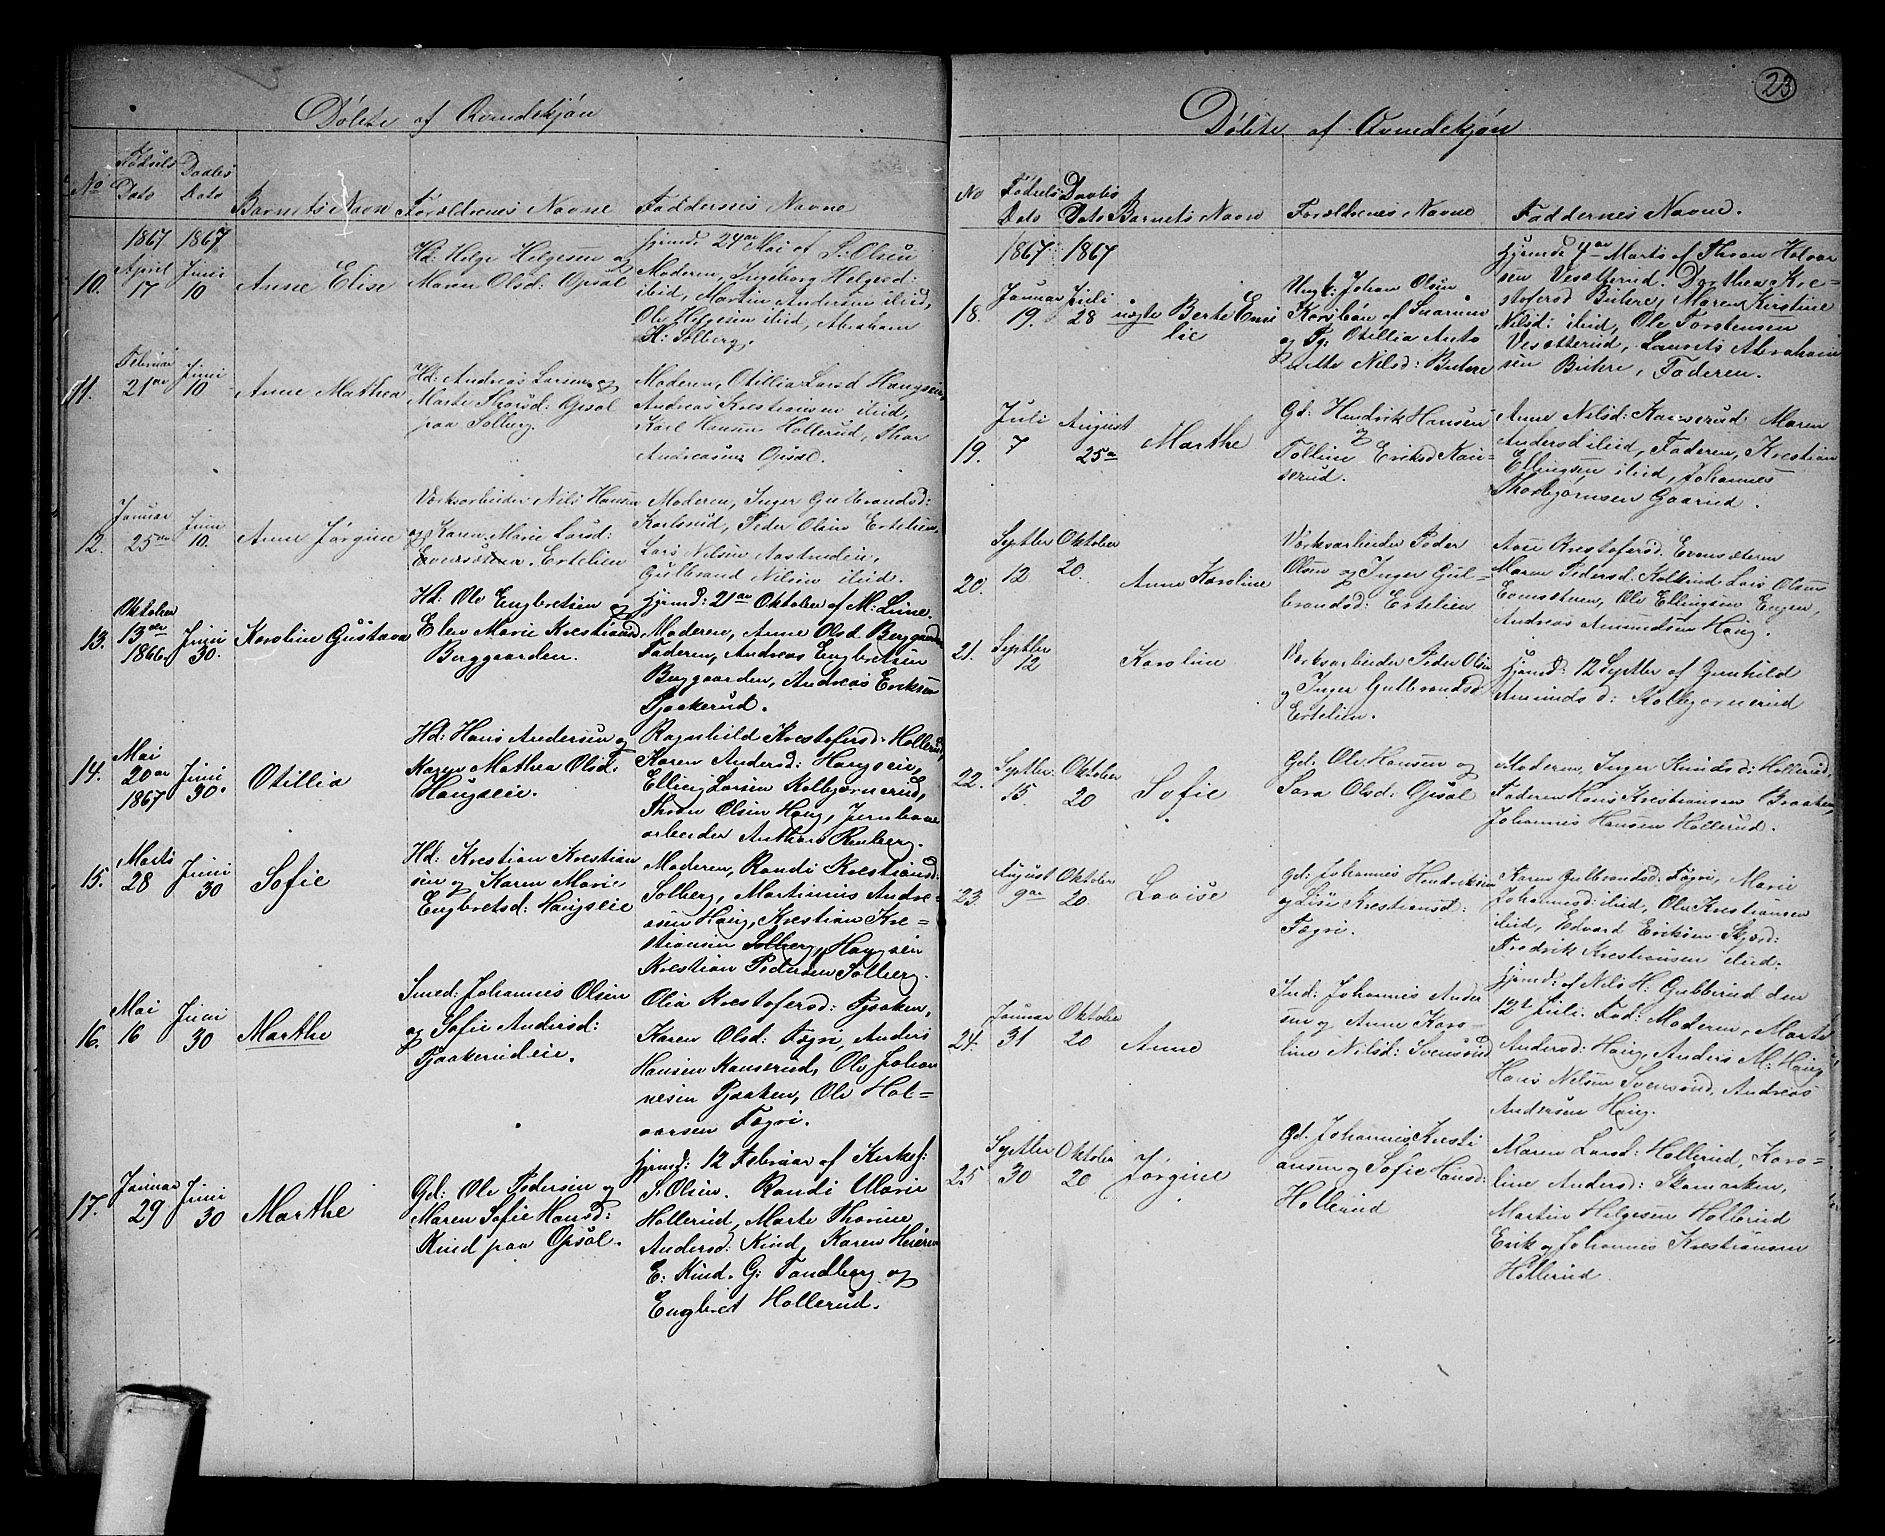 Døbte af Qvindekjøn
No
Fødsels Dato
Daabs Dato
Barnets Navn
Forældrenes Navne
Faddernes Navne
1867 1867
10.
April 17
Juni 10
Anne Elise
Hd: Helge Helgesen og
Maren Olsd: Opsal
hjemd: 24de Mai af S: Olsen
Moderen, Ingeborg Helgesd:
ibid, Martin Andersen ibid,
Ole Helgesen ibid, Abraham
H: Solberg.
11.
Februar 21de
Juni 10
Anne Mathea
Hd: Andreas Larsen og
Marte Thorsd: Opsal
paa Solberg.
Moderen, Otillia Larsd Haugseie,
Andreas Krestiansen ibid,
Karl Hansen Hollerud, Thor
Andreasen Opsal.
12.
Januar 25de
Juni 10.
Anne Jørgine
Værksarbeider Nils Hansen
og Karen Marie Larsd:
Evensæteren. Ertelien
Moderen, Inger Gulbrandsd:
Karlsrud, Peder Olsen Ertelien,
Lars Nilsen
Gulbrand Nilsen ibid.
13.
Oktober 13de 1866
Juni 30.
Karoline Gustava
Hd: Ole Engbretsen og
Elen Marie Krestiansd
Berggaarden.
Hjemd: 21de Oktober af M: Lime.
Moderen, Anne Olsd Berggaarden
Faderen, Andreas Engbretsen
Berggaarden, Andreas Eriksen
Pjaakerud.
14.
Mai 20de 1867
Juni 30.
Otillia
Hd: Hans Andersen og
Karen Mathea Olsd:
Haugseie.
Ragnhild Krestofersd: Hollerud,
Karen Andersd: Haugseie,
Elling Larsen Kolbjørnerud,
Thron Olsen Haug, Jernbane
arbeider Anthon Renberg.
15.
Marts 28
Juni 30
Sofie
Hd: Krestian Krestian
sen og Karen Marie
Engbretsd: Haugseie
Moderen, Randi Krestiansd:
Solberg, Martinius Andre-
asen Haug, Krestian Kre-
stiansen Solberg, Haugseie
Krestian Pedersen Solberg.
16.
Mai 16
Juni 30
Marthe
Smed: Johannes Olsen
og Sofie Andersd:
Pjaakerudeie.
Olia Krestofersd: Pjaaken,
Karen Olsd: Fægri, Anders
Hansen Kanserud, Ole Johan
nesen Pjaaken, Ole Hal-
vorsen Fægri.
17.
Januar 29
Juni 30
Marthe
Gd: Ole Pedersen og
Maren Sofie Hansd:
Kind paa Opsal.
hjemd: 12 Februar af Kirkes:
S: Olsen. Randi Marie
Hollerud, Marte Thorine
Andersd: Kind, Karen
E: Kind. G: Tandberg og
Engbret Hollerud.
23
Døbte af Qvindekjøn
No
Fødsels Dato
Daabs Dato
Barnets Navn
Forældrenes Navne
Faddernes Navne.
1867 1867
18.
Januar 19.
Juli 28
uægte Berte Emi
lie
Ungk: Johan Olsen
Korsbøn af Snarum
og Pg: Otillia Anto
nette Nilsd: Buhere
Hjemdt 7de Marts af Thron Halvor
sen Vesetterud. Dorthea Kre-
stofersd Buhere, Maren Kirstine
Nilsd: ibid, Ole Torstensen
Vesetterud, Laurits Abraham
sen Buhere, Faderen.
19.
Juli 7
August 25de
Marthe
Gd: Hendrik Hansen
og
Tolline Eriksd Kan-
serud.
Anne Nilsd: Kanserud Maren
Andersd ibid, Faderen, Krestian
Ellingsen ibid, Johannes
Thorbjørnsen Gaarud.
20.
Septber 12
Oktober 20.
Anne Karoline
Værksarbeider Peder
Olsen og Inger Gul-
brandsd: Ertelien
Anne Krestofersd. Evensæteren
Maren Pedersd: Lars Olsen
Evensæteren, Ole Ellingsen Engen,
Andreas Amundsen Haug.
21.
Septber 12
Karoline
Værksarbeider Peder Olsen
og Inger Gulbrandsd
Ertelien.
Hjemd: 12 Septber af Gunhild
Amundsd: Kolbjørnerud
22.
Septber 15
Oktober 20
Sofie
Gd: Ole Hansen og
Sara Olsd: Opsal
Moderen, Inger Knudsd: Hollerud,
Faderen Hans Krestiansen Braaten,
Johannes Hansen Hollerud.
23.
August 9de
Oktober 20
Lovise
Gd: Johannes Hendriksen
og Lise Krestiansd:
Fægri.
Karen Gulbrandsd: Fægri, Marie
Johannesd: ibid, Ole Krestiansen
ibid, Edvard Eriksen
Fredrik Krestiansen ibid.
24.
Januar 31
Oktober 20
Anne
Ind: Johannes Ander
sen og Anne Karo-
line Nilsd: Svensrud
Hjemd: af Nils H: Gubberud den
12te Juli. Fad: Moderen, Marte
Andersd: Haug, Anders M: Haug
Hans Nilsen Svensrud, Andreas
Andersen Haug.
25
Septber 30
Oktober 20
Jørgine
Gd. Johannes Kresti
ansen og Sofie Hansd:
Hollerud
Maren Larsd: Hollerud, Karo-
line Andersd: Skamarken,
Martin Helgesen Hollerud
Erik og Johannes Krestiansen
Hollerud